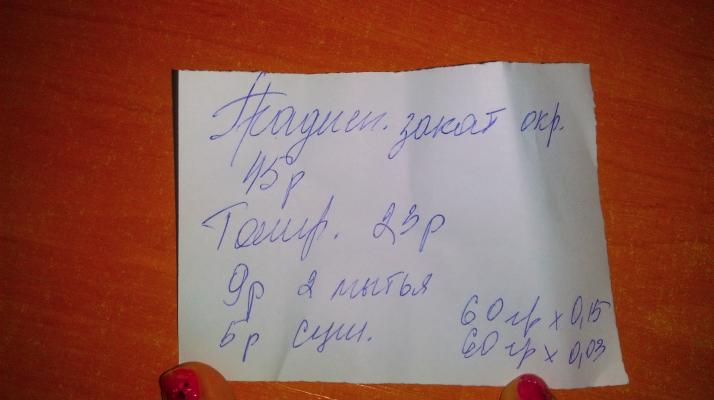 Традиц. закат окр.
45р
Тонир. 23р
9р 2 мытья
5р суш.
60гр х 0,15
60гр х 0,03